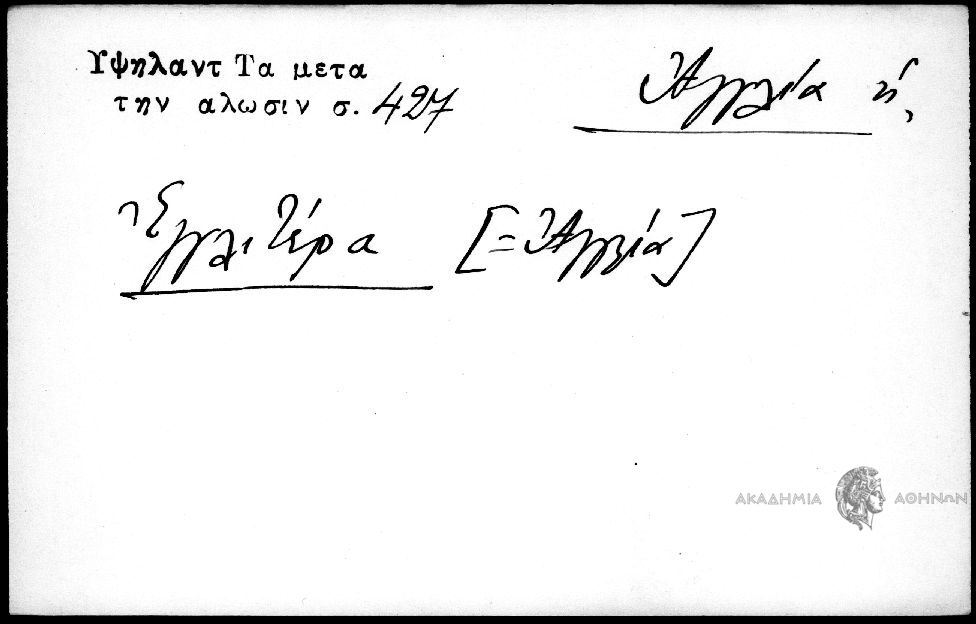 Υψηλαντ Τα μετα
την αλωσιν σ. 427
Ἀγγλία ἡ,
Ἐγγλιτέρα [= Ἀγγλία]
ΑΚΑΔΗΜΙΑ ΑΘΗΝΩΝ